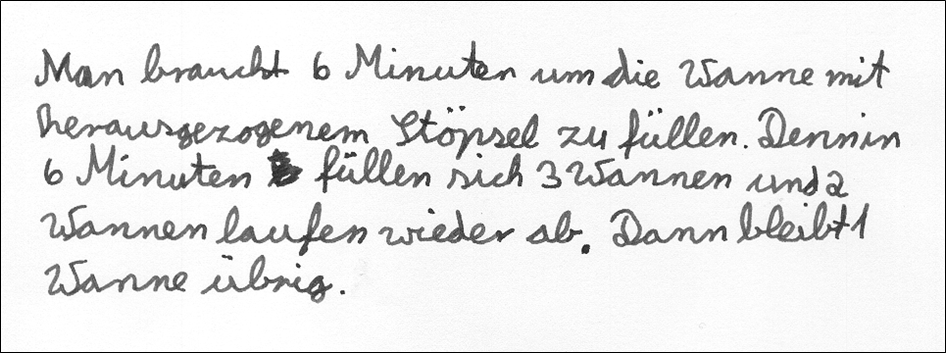 Man braucht 6 Minuten um die Wanne mit
herausgezogenem Stöpsel zu füllen. Denn in
6 Minuten füllen sich 3 Wannen und 2
Wannen laufen wieder ab. Dann bleibt 1
Wanne übrig.